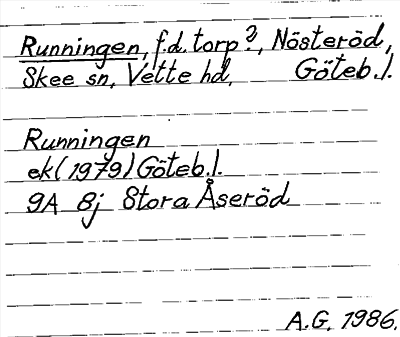 Runningen, f.d. torp?, Nösteröd,
Skee sn, Vette hd, Göteb.l.
Runningen
ek(1979) Göteb.l.
9A 8j Stora Åseröd
A.G. 1986.